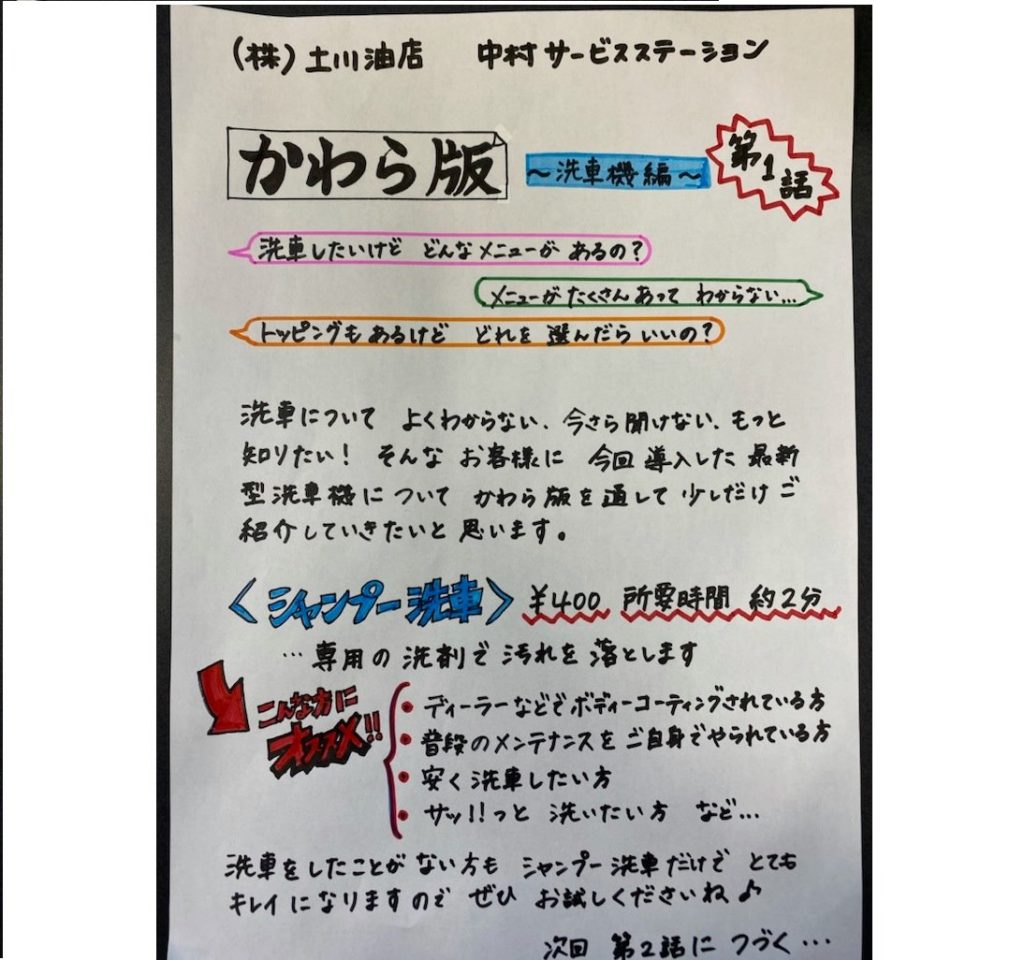 (株)土川油店　中村サービスステーション
かわら版 ～洗車機編～ 第1話
洗車したいけど どんなメニューが あるの?
メニューが たくさん あって わからない…
トッピングも あるけど どれを 選んだら いいの?
洗車について よくわからない、今さら聞けない、もっと
知りたい! そんな お客様に 今回 導入した 最新
型洗車機について かわら版を通して 少しだけご
紹介していきたいと 思います。
〈シャンプー洗車〉 ¥400 所要時間 約2分
…専用の洗剤で 汚れを 落とします
こんな方に
オススメ!!
• ディーラーなどでボディーコーティングされている方
• 普段のメンテナンスを ご自身でやられている方
• 安く洗車したい方
• サッ!!っと 洗いたい方 など…
洗車をしたことが ない方も シャンプー洗車だけで とても
キレイになりますので ぜひ お試しくださいね♪
次回 第2話に つづく…